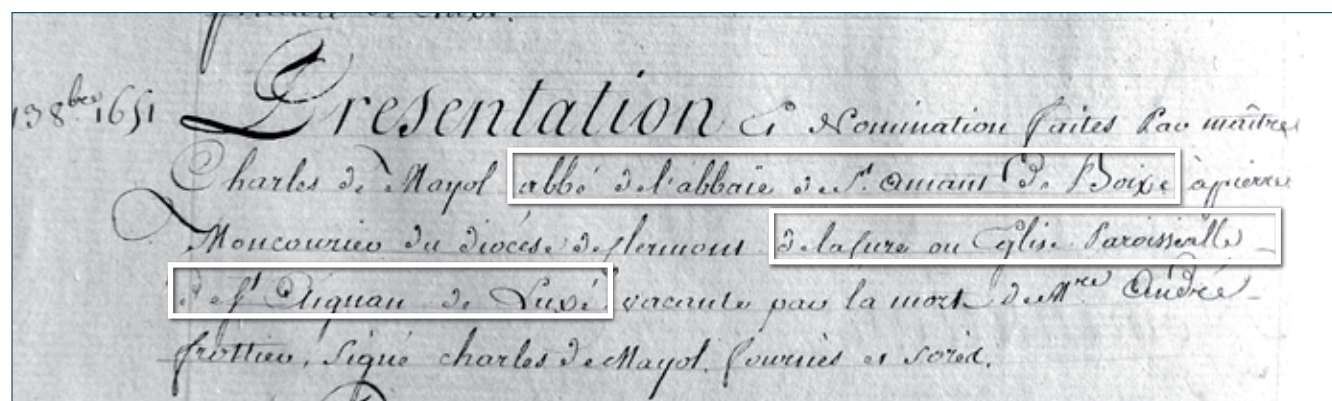 13 8bre 1651 Presentation & Nomination faites Par maître
Charles de Mayol abbé de l'abbaie de St. Amant de Boixe à pierre
Moncourier du diocése de Clermont de la Cure ou Eglise Paroissialle
de St Aignan de Luxé vacante par la mort de Mre André
frottier, Signé charles de Mayol. fourniés et Soréd.